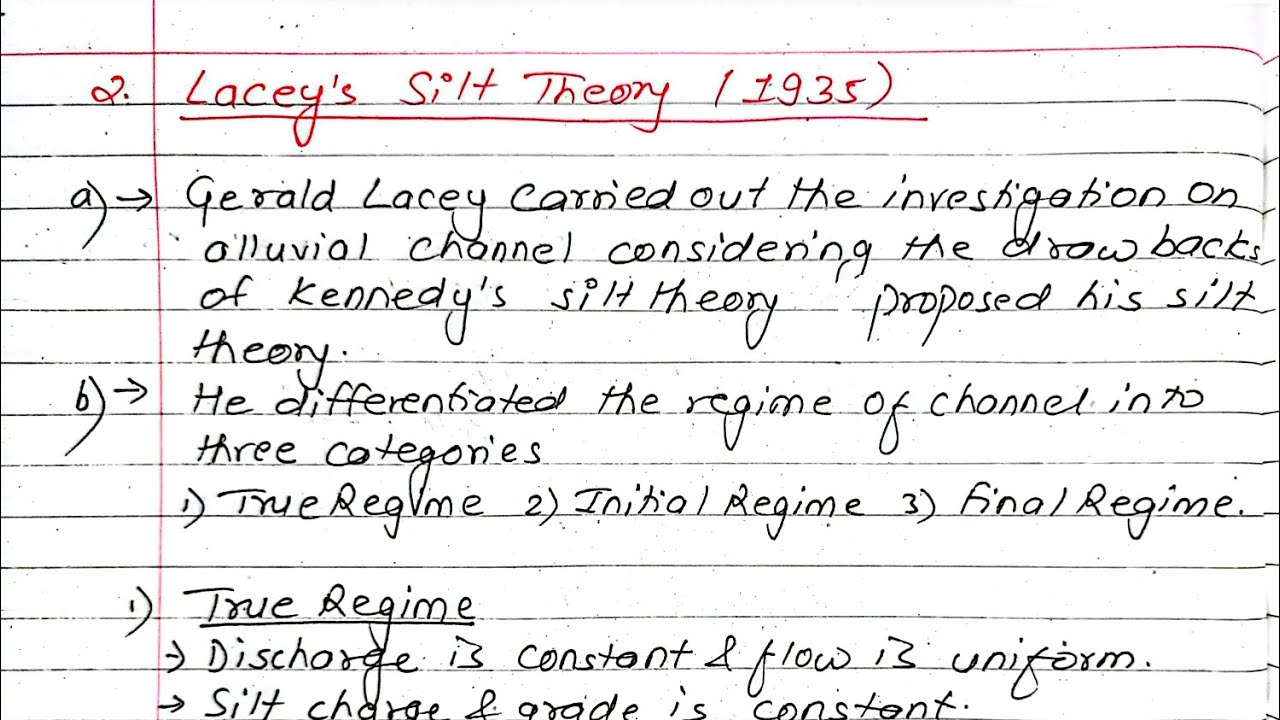 2. Lacey's Silt Theory (1935)
a) → Gerald Lacey carried out the investigation on
alluvial channel considering the drawbacks
of Kennedy's silt theory ' proposed his silt
theory.
b) → He differentiated the regime of channel into
three categories
1) True Regime 2) Initial Regime 3) Final Regime.
1) True Regime
→ Discharge is constant & flow is uniform.
→ Silt charge & grade is constant.